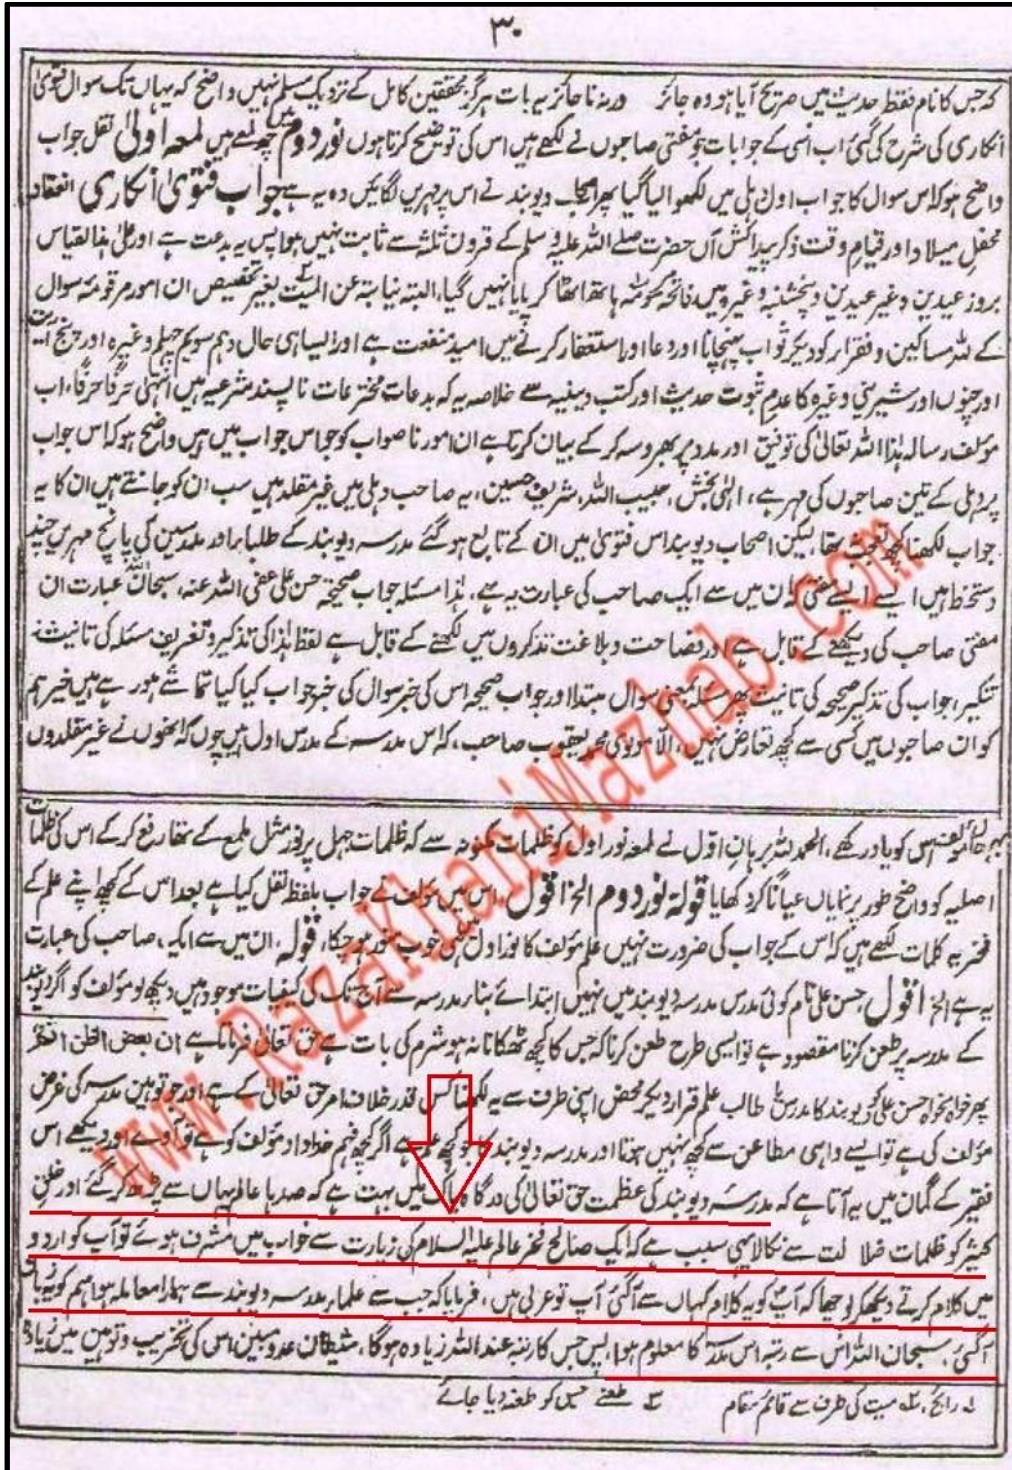 ۳۰
کہ جس کا نام فقط حدیث میں صریح آیا ہو وہ جائز ورنہ ناجائز یہ بات ہرگز محققین کامل کے نزدیک مسلم نہیں واضح کہ یہاں تک سوال فتویٰ
انکاری کی شرح کی گئی اب اسی کے جوابات جو مفتی صاحبوں نے لکھے ہیں اس کی توضیح کرتا ہوں نور دوم میں چھ لمعے ہیں لمعہ اولیٰ نقل جواب
واضح ہو کہ اس سوال کا جواب اول دہلی میں لکھوا لیا گیا پھر اصحاب دیوبند نے اس پر مہریں لگائیں وہ یہ ہے جواب فتویٰ انکاری انعقاد
محفل میلاد اور قیام وقت ذکر پیدائش آں حضرت صلے اللہ علیہ و سلم کے قرون ثلثہ سے ثابت نہیں ہوا پس یہ بدعت ہے اور علیٰ ہذا القیاس
بروز عیدین و غیر عیدین و پنجشنبہ وغیرہ میں فاتحہ مرسومہ ہاتھ اٹھا کر پایا نہیں گیا، البتہ نیابتہ عن المیت بغیر تخصیص ان امور مرقومہ سوال
کے للہ مساکین و فقراء کو دیکر ثواب پہنچانا اور دعا اور استغفار کرنے میں امید منفعت ہے اور ایسا ہی حال دہم سویم چہلم وغیرہ اور پنج آیت
اور چنوں اور شیرینی وغیرہ کا عدم ثبوت حدیث اور کتب دینیہ سے خلاصہ یہ کہ بدعات مخترعات ناپسند شرعیہ ہیں انتہیٰ حرفاً حرفاً، اب
مؤلف رسالہ ہذا اللہ تعالیٰ کی توفیق اور مدد پر بھروسہ کر کے بیان کرتا ہے ان امور ناصواب کو جو اس جواب میں ہیں واضح ہو کہ اس جواب
پر دہلی کے تین صاحبوں کی مہر ہے، الٰہی بخش، حبیب اللہ، شریف حسین، یہ صاحب دہلی میں غیر مقلد ہیں سب ان کو جانتے ہیں ان کا یہ
جواب لکھنا کچھ تعجب نہ تھا لیکن اصحاب دیوبند اس فتویٰ میں ان کے تابع ہو گئے مدرسہ دیوبند کے طلباء اور مدرسین کی پانچ مہریں چند
دستخط ہیں ایسے ایسے مفتی کہ ان میں سے ایک صاحب کی عبارت یہ ہے، ہٰذا مسئلہ جواب صحیحۃ حسن علی عفی اللہ عنہ، سبحان اللہ عبارت ان
مفتی صاحب کی دیکھنے کے قابل ہے اور فصاحت و بلاغت تذکروں میں لکھنے کے قابل ہے لفظ ہٰذا کی تذکیر و تعریف مسئلہ کی تانیث
تنکیر، جواب کی تذکیر صحیحہ کی تانیث پھر مسئلہ بمعنی سوال مبتدا اور جواب صحیحہ اس کی خبر سوال کی خبر جواب کیا کیا تماشے ہو رہے ہیں خیر ہم
کو ان صاحبوں میں کسی سے کچھ تعارض نہیں، الّا مولوی محمد یعقوب صاحب، کہ اس مدرسہ کے مدرس اول ہیں چوں کہ انھوں نے غیر مقلدوں
اس کو یاد رکھے، الحمد للہ برہان اول نے لمعہ نور اول کو ظلمات سے کہ ظلمات جہل پر نور مثل ملمع کے تھا رفع کر کے اس کی ظلمات
اصلیہ کو واضح طور پر نمایاں عیاناً کر دکھایا قولہ نور دوم الخ اقول، اس میں مؤلف نے جواب بلفظہ نقل کیا ہے بعد اس کے کچھ اپنے علم کے
فخریہ کلمات لکھے ہیں کہ اس کے جواب کی ضرورت نہیں علم مؤلف کا نور اول میں خوب ہو چکا، قولہ، ان میں سے ایک صاحب کی عبارت
یہ ہے الخ اقول، حسن علی نام کوئی مدرس مدرسہ دیوبند میں نہیں ابتدائے بناء مدرسہ سے آج تک کی کیفیات موجود ہیں دیکھ لو مؤلف کو اگر دیوبند
کے مدرسہ پر طعن کرنا مقصود ہے تو ایسی طرح طعن کرنا کہ جس کا کچھ ٹھکانا نہ ہو شرم کی بات ہے حق تعالیٰ فرماتا ہے ان بعض الظن اثم
پھر خواہ نخواہ حسن علی کو دیوبند کا مدرس طالب علم قرار دیکر محض اپنی طرف سے یہ لکھنا کس قدر خلاف امر حق تعالیٰ کے ہے اور جو توہین مدرسہ کی غرض
مؤلف کی ہے تو ایسے واہی مطاعن سے کچھ نہیں ہوتا اور مدرسہ دیوبند کا جو کچھ علم ہے اگر کچھ فہم خداداد مؤلف کو ہے تو آوے اور دیکھے اس
فقیر کے گمان میں یہ آتا ہے کہ مدرسہ دیوبند کی عظمت حق تعالیٰ کی درگاہ پاک میں بہت ہے کہ صدہا عالم یہاں سے پڑھ کر گئے اور خلق
کثیر کو ظلمات ضلالت سے نکالا یہی سبب ہے کہ ایک صالح فخر عالم علیہ السلام کی زیارت سے خواب میں مشرف ہوئے تو آپ کو اردو
میں کلام کرتے دیکھ کر پوچھا کہ آپ کو یہ کلام کہاں سے آگئی آپ تو عربی ہیں، فرمایا کہ جب سے علماء مدرسہ دیوبند سے ہمارا معاملہ ہوا ہم کو یہ زبان
آگئی، سبحان اللہ اس سے رتبہ اس مدرسہ کا معلوم ہوا، پس جس کا رتبہ عنداللہ زیادہ ہوگا، شیطان عدو مبین اسی کی تخریب و توہین میں زیادہ
لہ رائج، ۲ہ میت کی طرف سے قائم مقام ۳ہ طعنے جس کو طعنہ دیا جائے
www.RazaKhaniMazhab.com